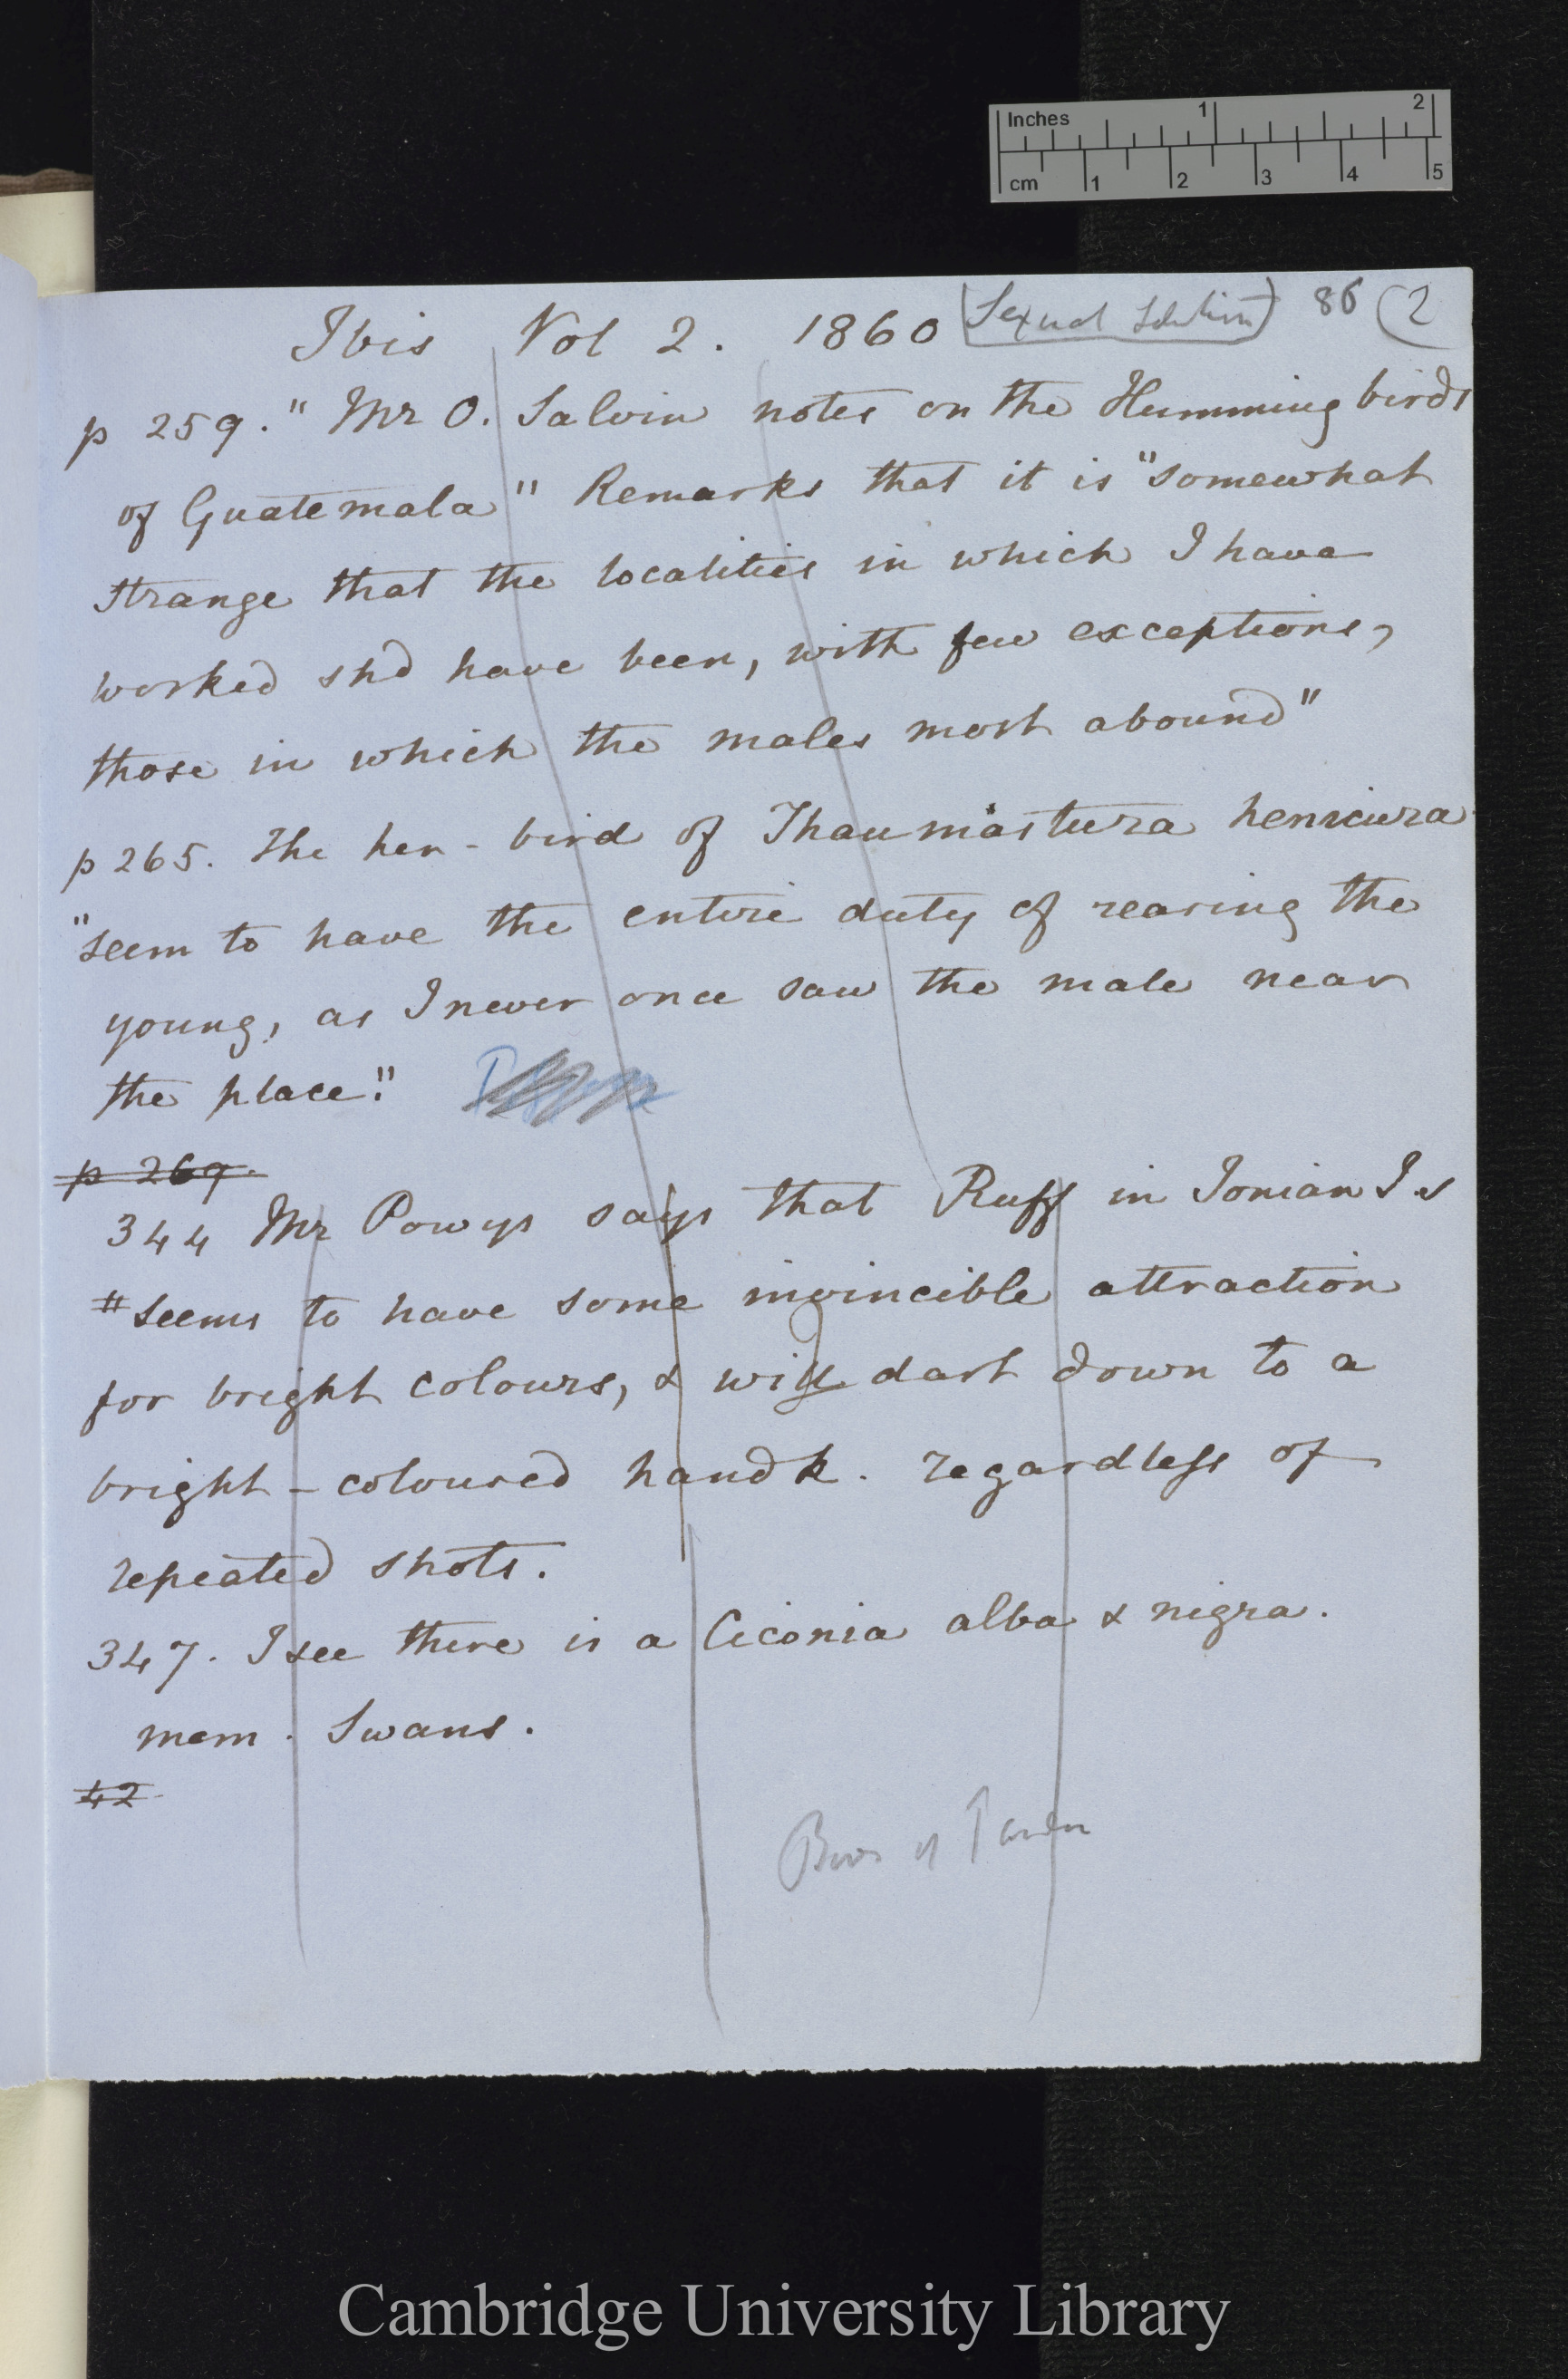 Inches 1 2
cm 1 2 3 4 5
Ibis Vol 2. 1860 Sexual Selection 86 (2
p 259. "Mr O. Salvin notes on the Humming birds
of Guatemala" Remarks that it is "somewhat
strange that the localities in which I have
worked shd have been, with few exceptions,
those in which the males most abound"
p 265. The hen-bird of Thaumastura henicura
"seem to have the entire duty of rearing the
young, as I never once saw the male near
the place."
p 269.
344 Mr Powys says that Ruff in Ionian I.s
"seems to have some invincible attraction
for bright colours, & will dart down to a
bright-coloured handk. regardless of
repeated shots.
347. I see there is a Ciconia alba & nigra.
mem. Swans.
42
Cambridge University Library